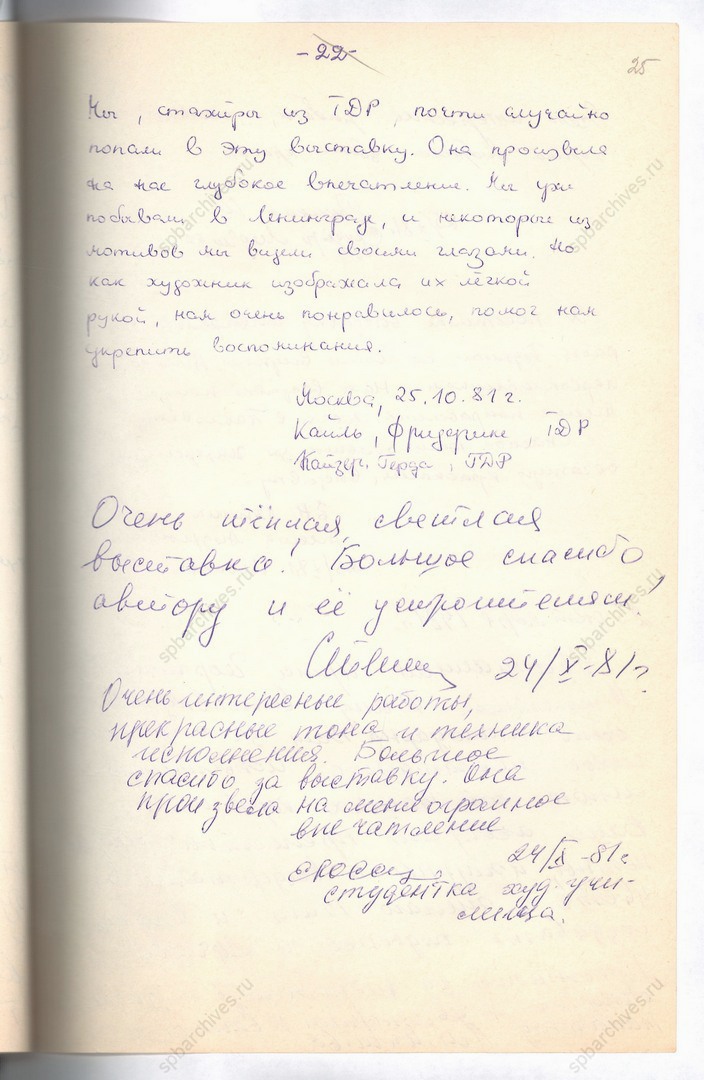 -22-
25
Мы, стажёры из ГДР, почти случайно
попали в эту выставку. Она произвела
на нас глубокое впечатление. Мы уже
побывали в Ленинграде, и некоторые из
мотивов мы видели своими глазами. Но
как художник изображала их лёгкой
рукой, нам очень понравилось, помог нам
укрепить воспоминания.
Москва, 25.10.81 г.
Кайль, Фридерике, ГДР
Кайзер, Герда, ГДР
Очень тёплая, светлая
выставка! Большое спасибо
автору и её устроителям!
24/X-81 г.
Очень интересные работы,
прекрасные тона и техника
исполнения. Большое
спасибо за выставку. Она
произвела на меня огромное
впечатление
24/X-81 г.
студентка худ. учи-
лища.
spbarchives.ru
spbarchives.ru
spbarchives.ru
spbarchives.ru
spbarchives.ru
spbarchives.ru